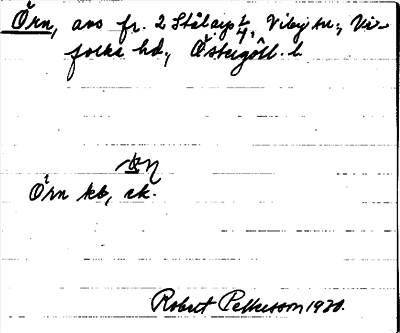 Örn, avs fr. 2 Stålarp 1/4, Viby sn., Vi-
folka hd., Östergötl. l.
Örn kb, ek.
Robert Pettersson 1930.